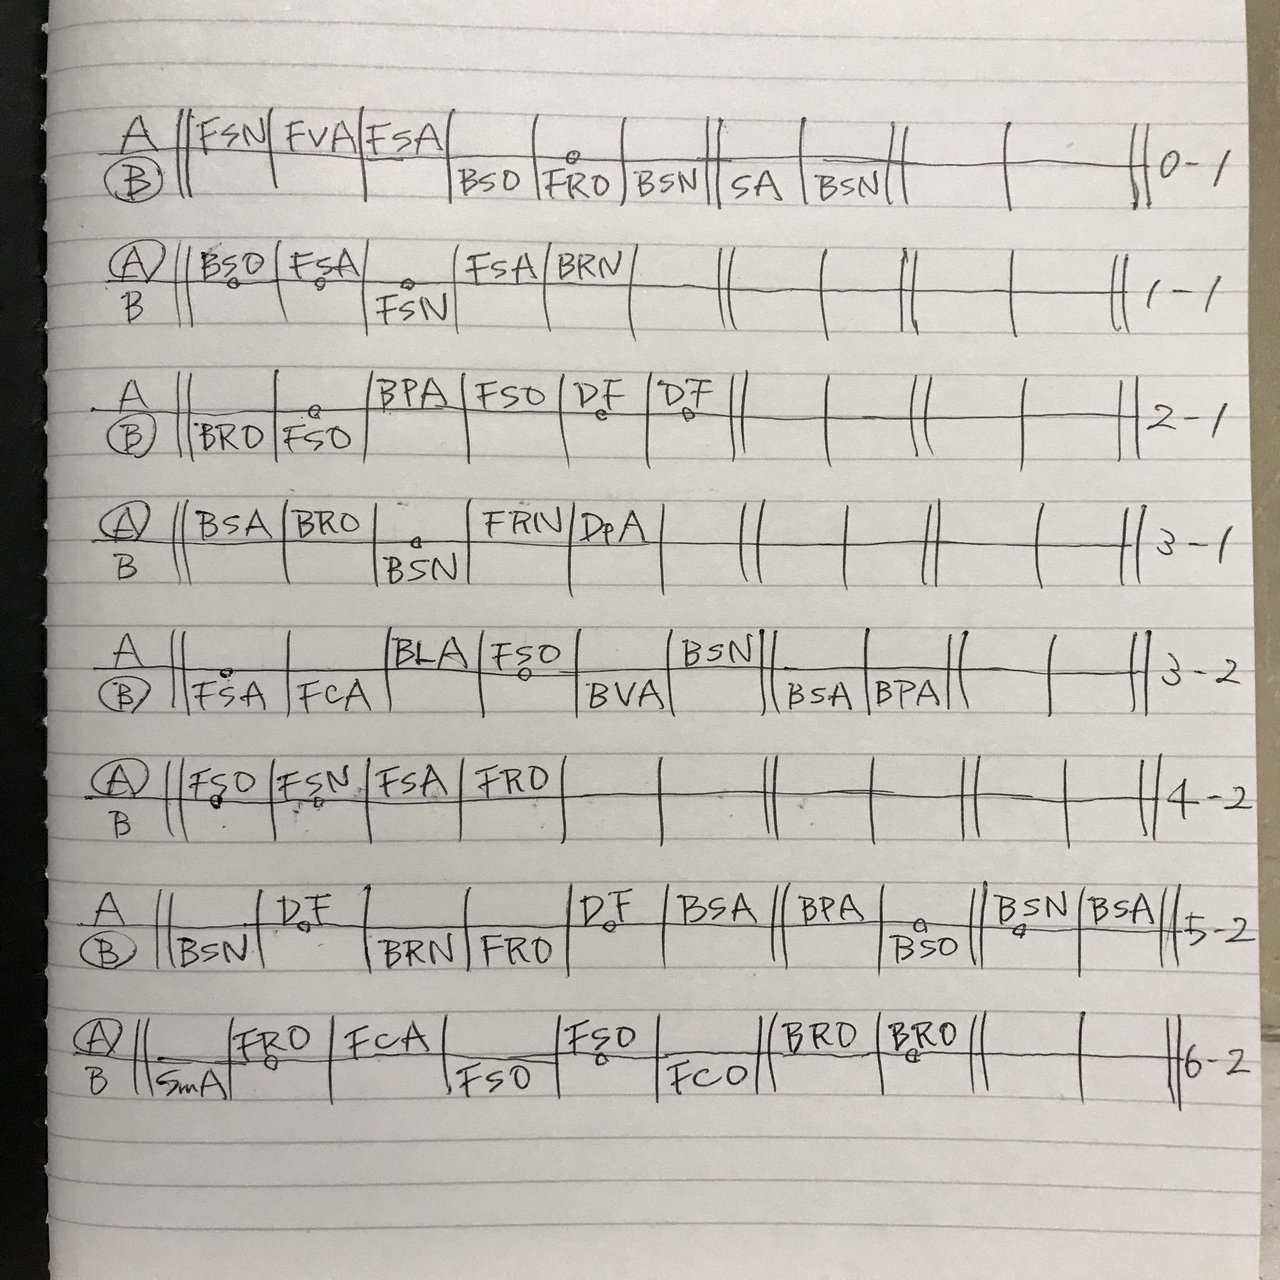 A FSN FVA FSA
B BSO FRO BSN SA BSN 0-1
A BSO FSA FSA BRN
B FSN 1-1
A BPA FSO DF DF
B BRO FSO 2-1
A BSA BRO FRN DPA
B BSN 3-1
A BLA FSO BSN
B FSA FCA BVA BSA BPA 3-2
A FSO FSN FSA FRO
B 4-2
A DF DF BSA BPA BSN BSA
B BSN BRN FRO BSO 5-2
A FRO FCA FSO BRO BRO
B SmA FSO FCO 6-2